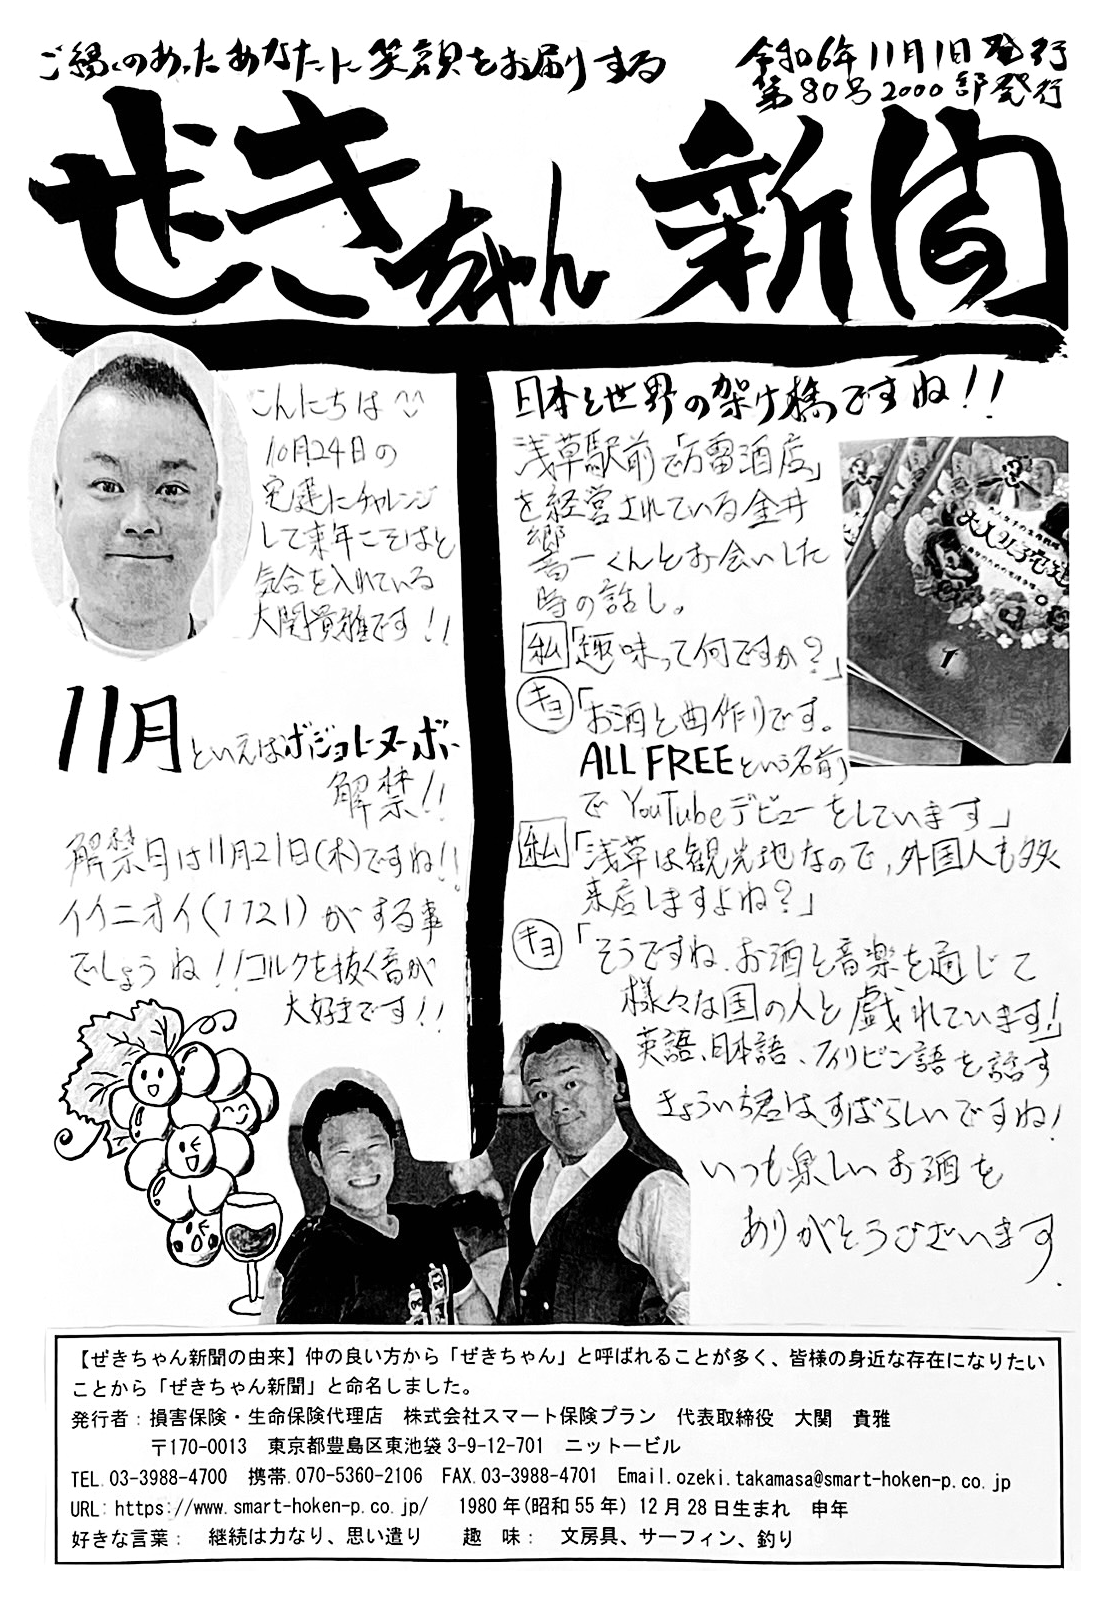 ご縁のあったあなたに笑顔をお届けする
令和6年11月1日発行
第80号2000部発行
ぜきちゃん新聞
こんにちは
10月24日の
宅建にチャレンジ
して来年こそはと
気合を入れている
大関貴雅です!!
11月といえばボジョレーヌーボー
解禁!!
解禁日は11月21日(木)ですね!!
イイニオイ(1121)がする事
でしょうね!!コルクを抜く音が
大好きです!!
日本と世界の架け橋ですね!!
浅草駅前で「方雷酒店」
を経営されている金井
響一くんとお会いした
時の話し。
私「趣味って何ですか?」
キョ「お酒と曲作りです。
ALL FREEという名前
でYouTubeデビューをしています」
私「浅草は観光地なので,外国人も多々
来店しますよね?」
キョ「そうですね、お酒と音楽を通じて
様々な国の人と戯れています!」
英語、日本語、フィリピン語を話す
きょういち君は、すばらしいですね!
いつも楽しいお酒を
ありがとうございます.
【ぜきちゃん新聞の由来】仲の良い方から「ぜきちゃん」と呼ばれることが多く、皆様の身近な存在になりたい
ことから「ぜきちゃん新聞」と命名しました。
発行者:損害保険・生命保険代理店 株式会社スマート保険プラン 代表取締役 大関 貴雅
〒170-0013 東京都豊島区東池袋3-9-12-701 ニットービル
TEL.03-3988-4700 携帯.070-5360-2106 FAX.03-3988-4701 Email.ozeki.takamasa@smart-hoken-p.co.jp
URL:https://www.smart-hoken-p.co.jp/ 1980年(昭和55年)12月28日生まれ 申年
好きな言葉: 継続は力なり、思い遣り 趣 味: 文房具、サーフィン、釣り